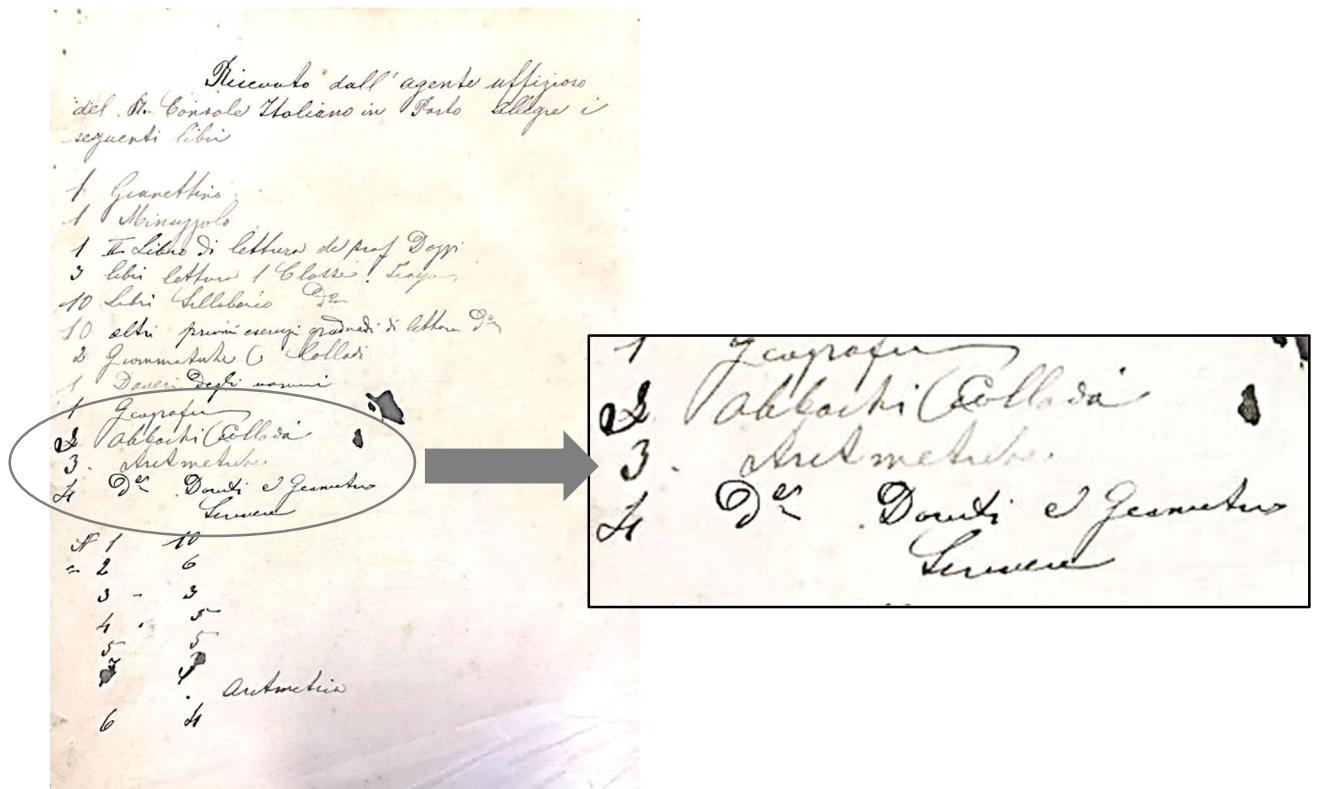 Ricevuto dall' agente uffizioso
del R. Console Italiano in Porto Allegre i
seguenti libri
1 Gianettino
1 Minuzzolo
1 II Libro di lettura del prof
3 libri lettura 1 Classe
10 Libri Sillabario Do
10 altri primi esercizi graduati di lettura Do
2 Grammatiche C Collodi
1 Doveri degli uomini
1 Geografia
2 Abbachi (Collodi
3. Aritmetiche
4 Do e Geometria
N 1 10
= 2 6
3 - 3
4 . 5
5 5
Aritmetica
6 4
1 Geografia
2 Abbachi (Collodi
3. Aritmetiche
4 Do e Geometria